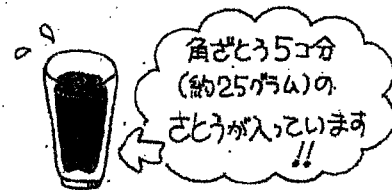 角ざとう5コ分
(約25グラム)の
さとうが入っています
!!